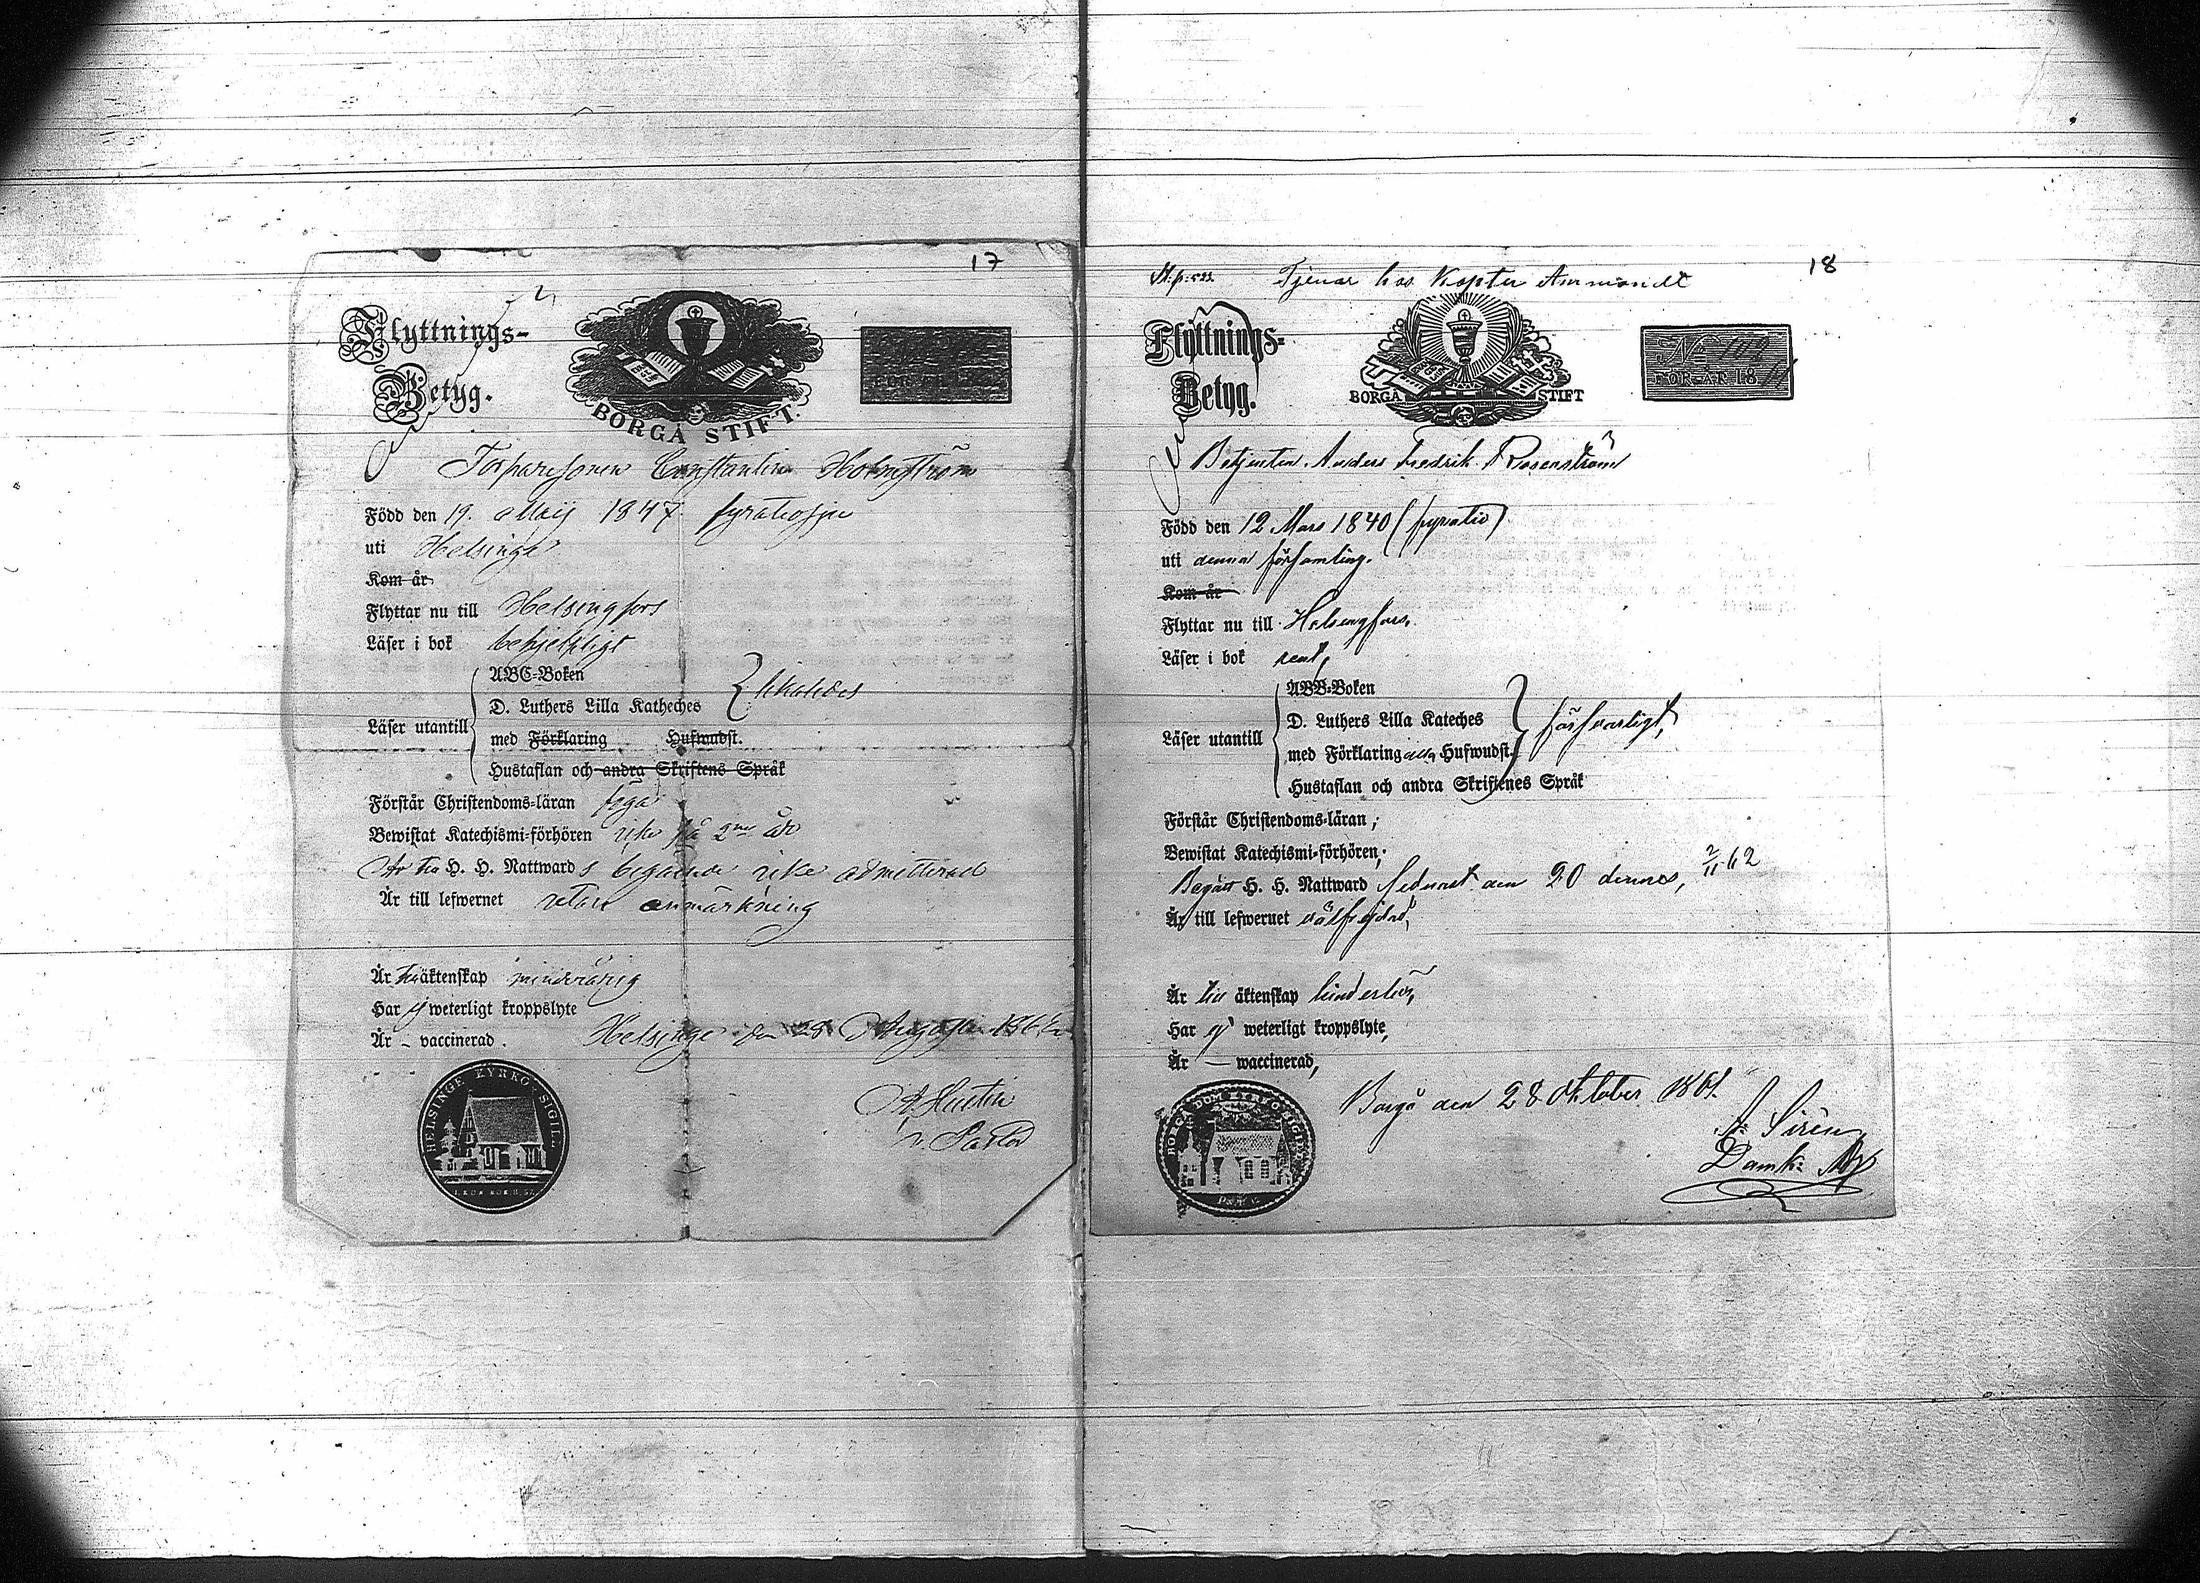 17
Flyttnings-
Betyg.
BORGÅ STIFT.
Torparesonen Constantin Holmström
Född den 19. Maij 1847 fyratiosju
uti Helsinge
Kom år
Flyttar nu till Helsingfors
Läser i bok behjelpligt
ABC-Boken
D. Luthers Lilla Katheches
Läser utantill
med Förklaring Hufwudst.
likaledes
Hustaflan och andra Skriftens Språk
Förstår Christendoms-läran föga
Bewistat Katechismi-förhören icke på 2ne år
Är till H. H. Nattwards begående icke admitterad
Är till lefwernet utan anmärkning
Är till äktenskap minderårig
Har ej weterligt kroppslyte
Är – vaccinerad.
Helsinge den 28 Augusti
HELSINGE KYRKO SIGILL
v. Pastor
18
Tjenar hos
Flyttnings-
Betyg.
BORGÅ STIFT
No 109
FÖR ÅR 18
Betjenten Anders Fredrik Rosenström
Född den 12 Mars 1840 (fyratio)
uti denna församling.
Kom år
Flyttar nu till Helsingfors.
Läser i bok rent,
ABC-Boken
D. Luthers Lilla Kateches
Läser utantill
med Förklaring Hufwudst.
försvarligt,
Hustaflan och andra Skriftenes Språk
Förstår Christendoms-läran;
Bewistat Katechismi-förhören;
Begått H. H. Nattward sednast den 20 dennes, 2/11 62
Är till lefwernet välfrejdad,
Är till äktenskap hinderlös,
Har ej weterligt kroppslyte,
Är — waccinerad,
Borgå den 28 Oktober 1861.
A. Sirén
Domk: